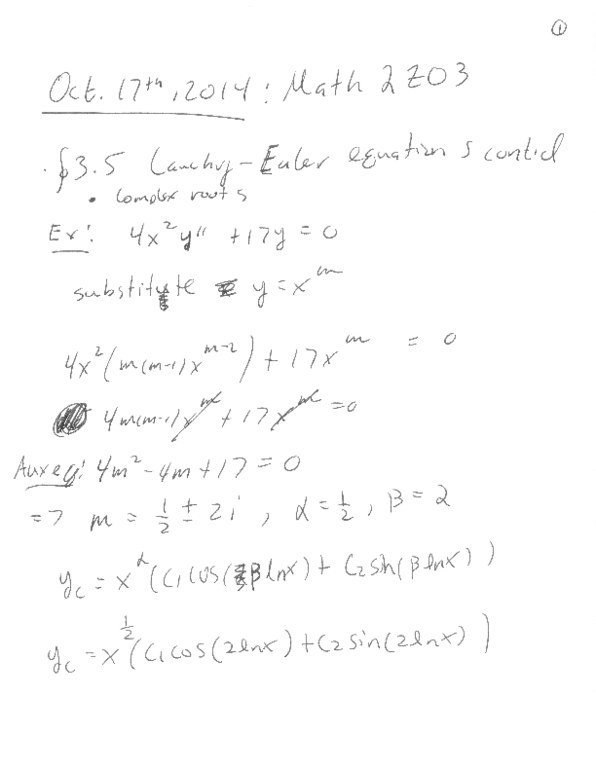 ①
Oct. 17th, 2014 : Math 2Z03
· §3.5 Cauchy-Euler equations contd
• Complex roots
Ex: 4x²y'' + 17y = 0
substitute y = x^m
4x²(m(m-1)x^(m-2)) + 17x^m = 0
4m(m-1)x^m + 17x^m = 0
Aux eq: 4m² - 4m + 17 = 0
=> m = 1/2 ± 2i , α = 1/2 , β = 2
y_c = x^α (C₁cos(βlnx) + C₂sin(βlnx))
y_c = x^(1/2) (C₁cos(2lnx) + C₂sin(2lnx))